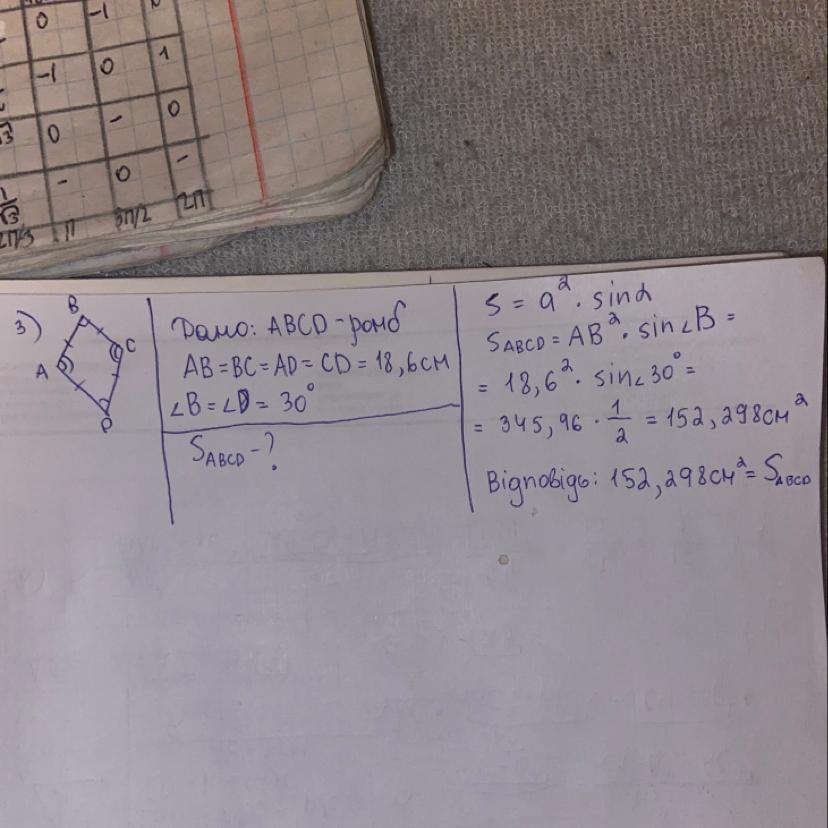 0 -1
-1 0 1
√3 0 - 0
1/√3 - 0 -
2π/3 π 3π/2 2π
3)
B
A
C
D
Дано: ABCD - ромб
AB = BC = AD = CD = 18,6 см
∠B = ∠D = 30°
S_ABCD - ?
S = a² · sinα
S_ABCD = AB² · sin∠B =
= 18,6² · sin∠30° =
= 345,96 · 1/2 = 152,298 см²
Відповідь: 152,298 см² = S_ABCD